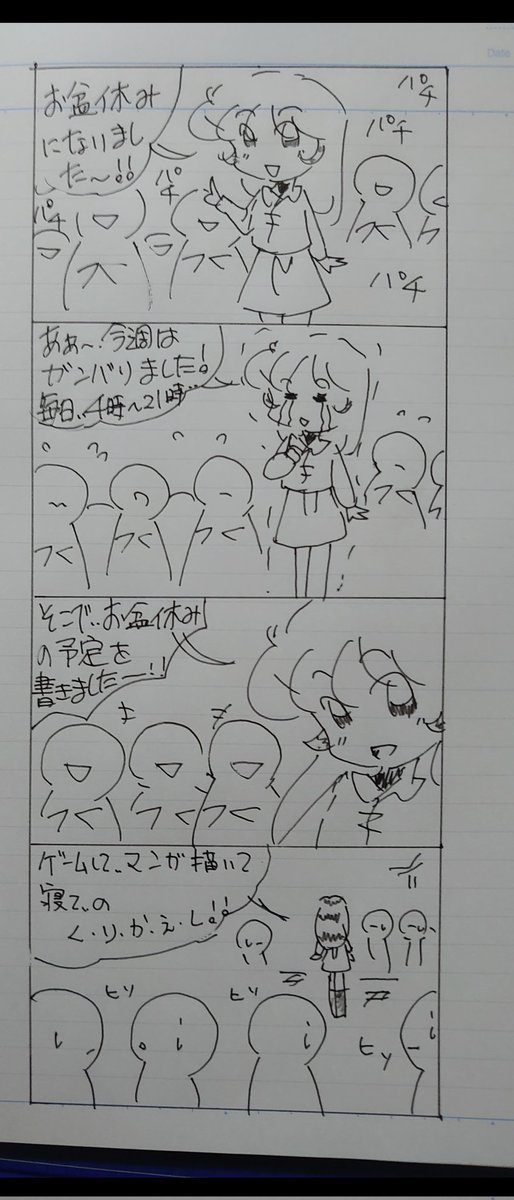 Date
お盆休み
になりまし
た〜!!
パチ
パチ
パチ
パチ
パチ
あぁ〜!今週は
ガンバりました!
毎日、4時〜21時…
そこで、お盆休み
の予定を
書きましたー!!
ゲームして、マンガ描いて
寝て、の
く・り・か・え・し!!
ヒソ
ヒソ
ヒソ